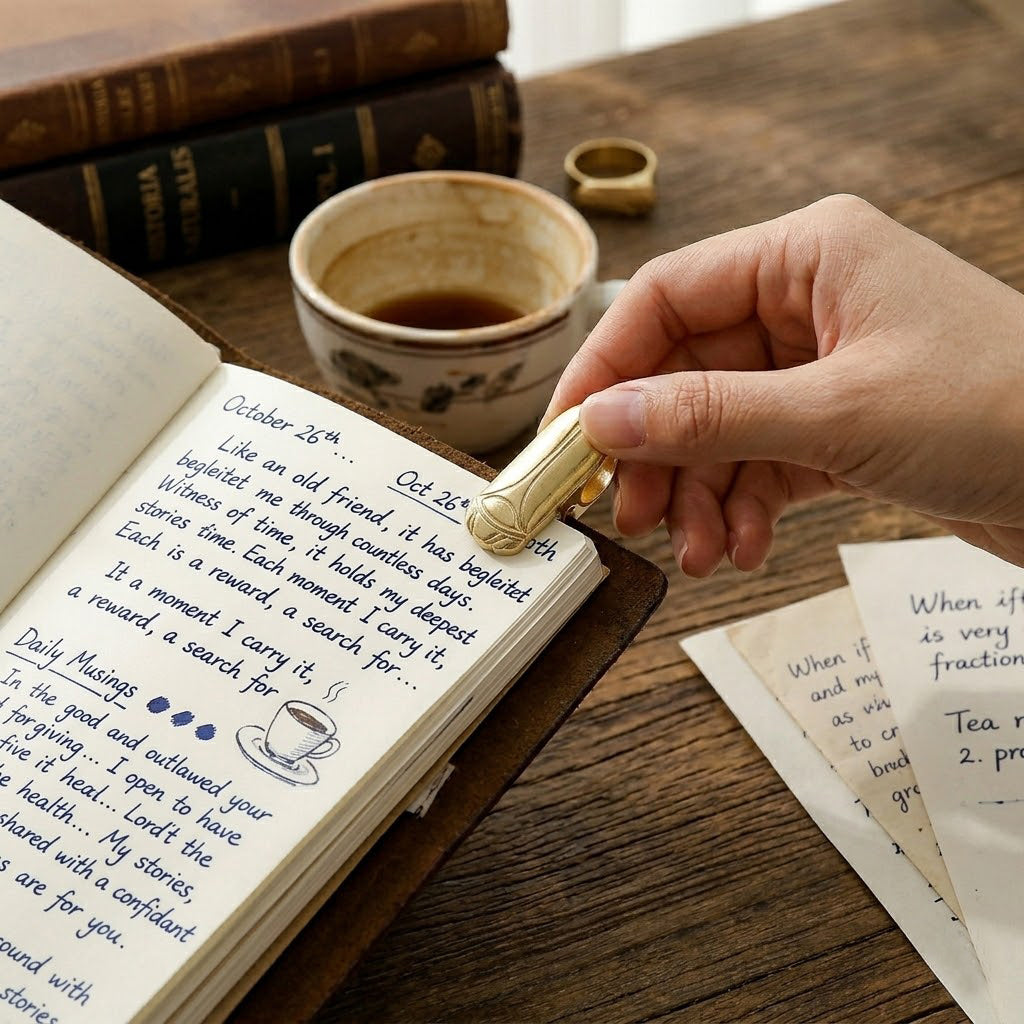 HISTORIA
NATURALIS
VOL. I
October 26th...
Oct 26th
Like an old friend, it has
begleitet me through countless days.
Witness of time, it holds my deepest
stories time. Each moment I carry it,
Each is a reward, a search for...
It a moment I carry it,
a reward, a search for
oth
begleitet
Daily Musings
In the good and outlawed your
for giving... I open to have
five it heal... Lord't the
health... My stories,
shared with a confidant
are for you.
ound with
stories
When if
and my
as
to
When
is very
fraction
Tea
2.